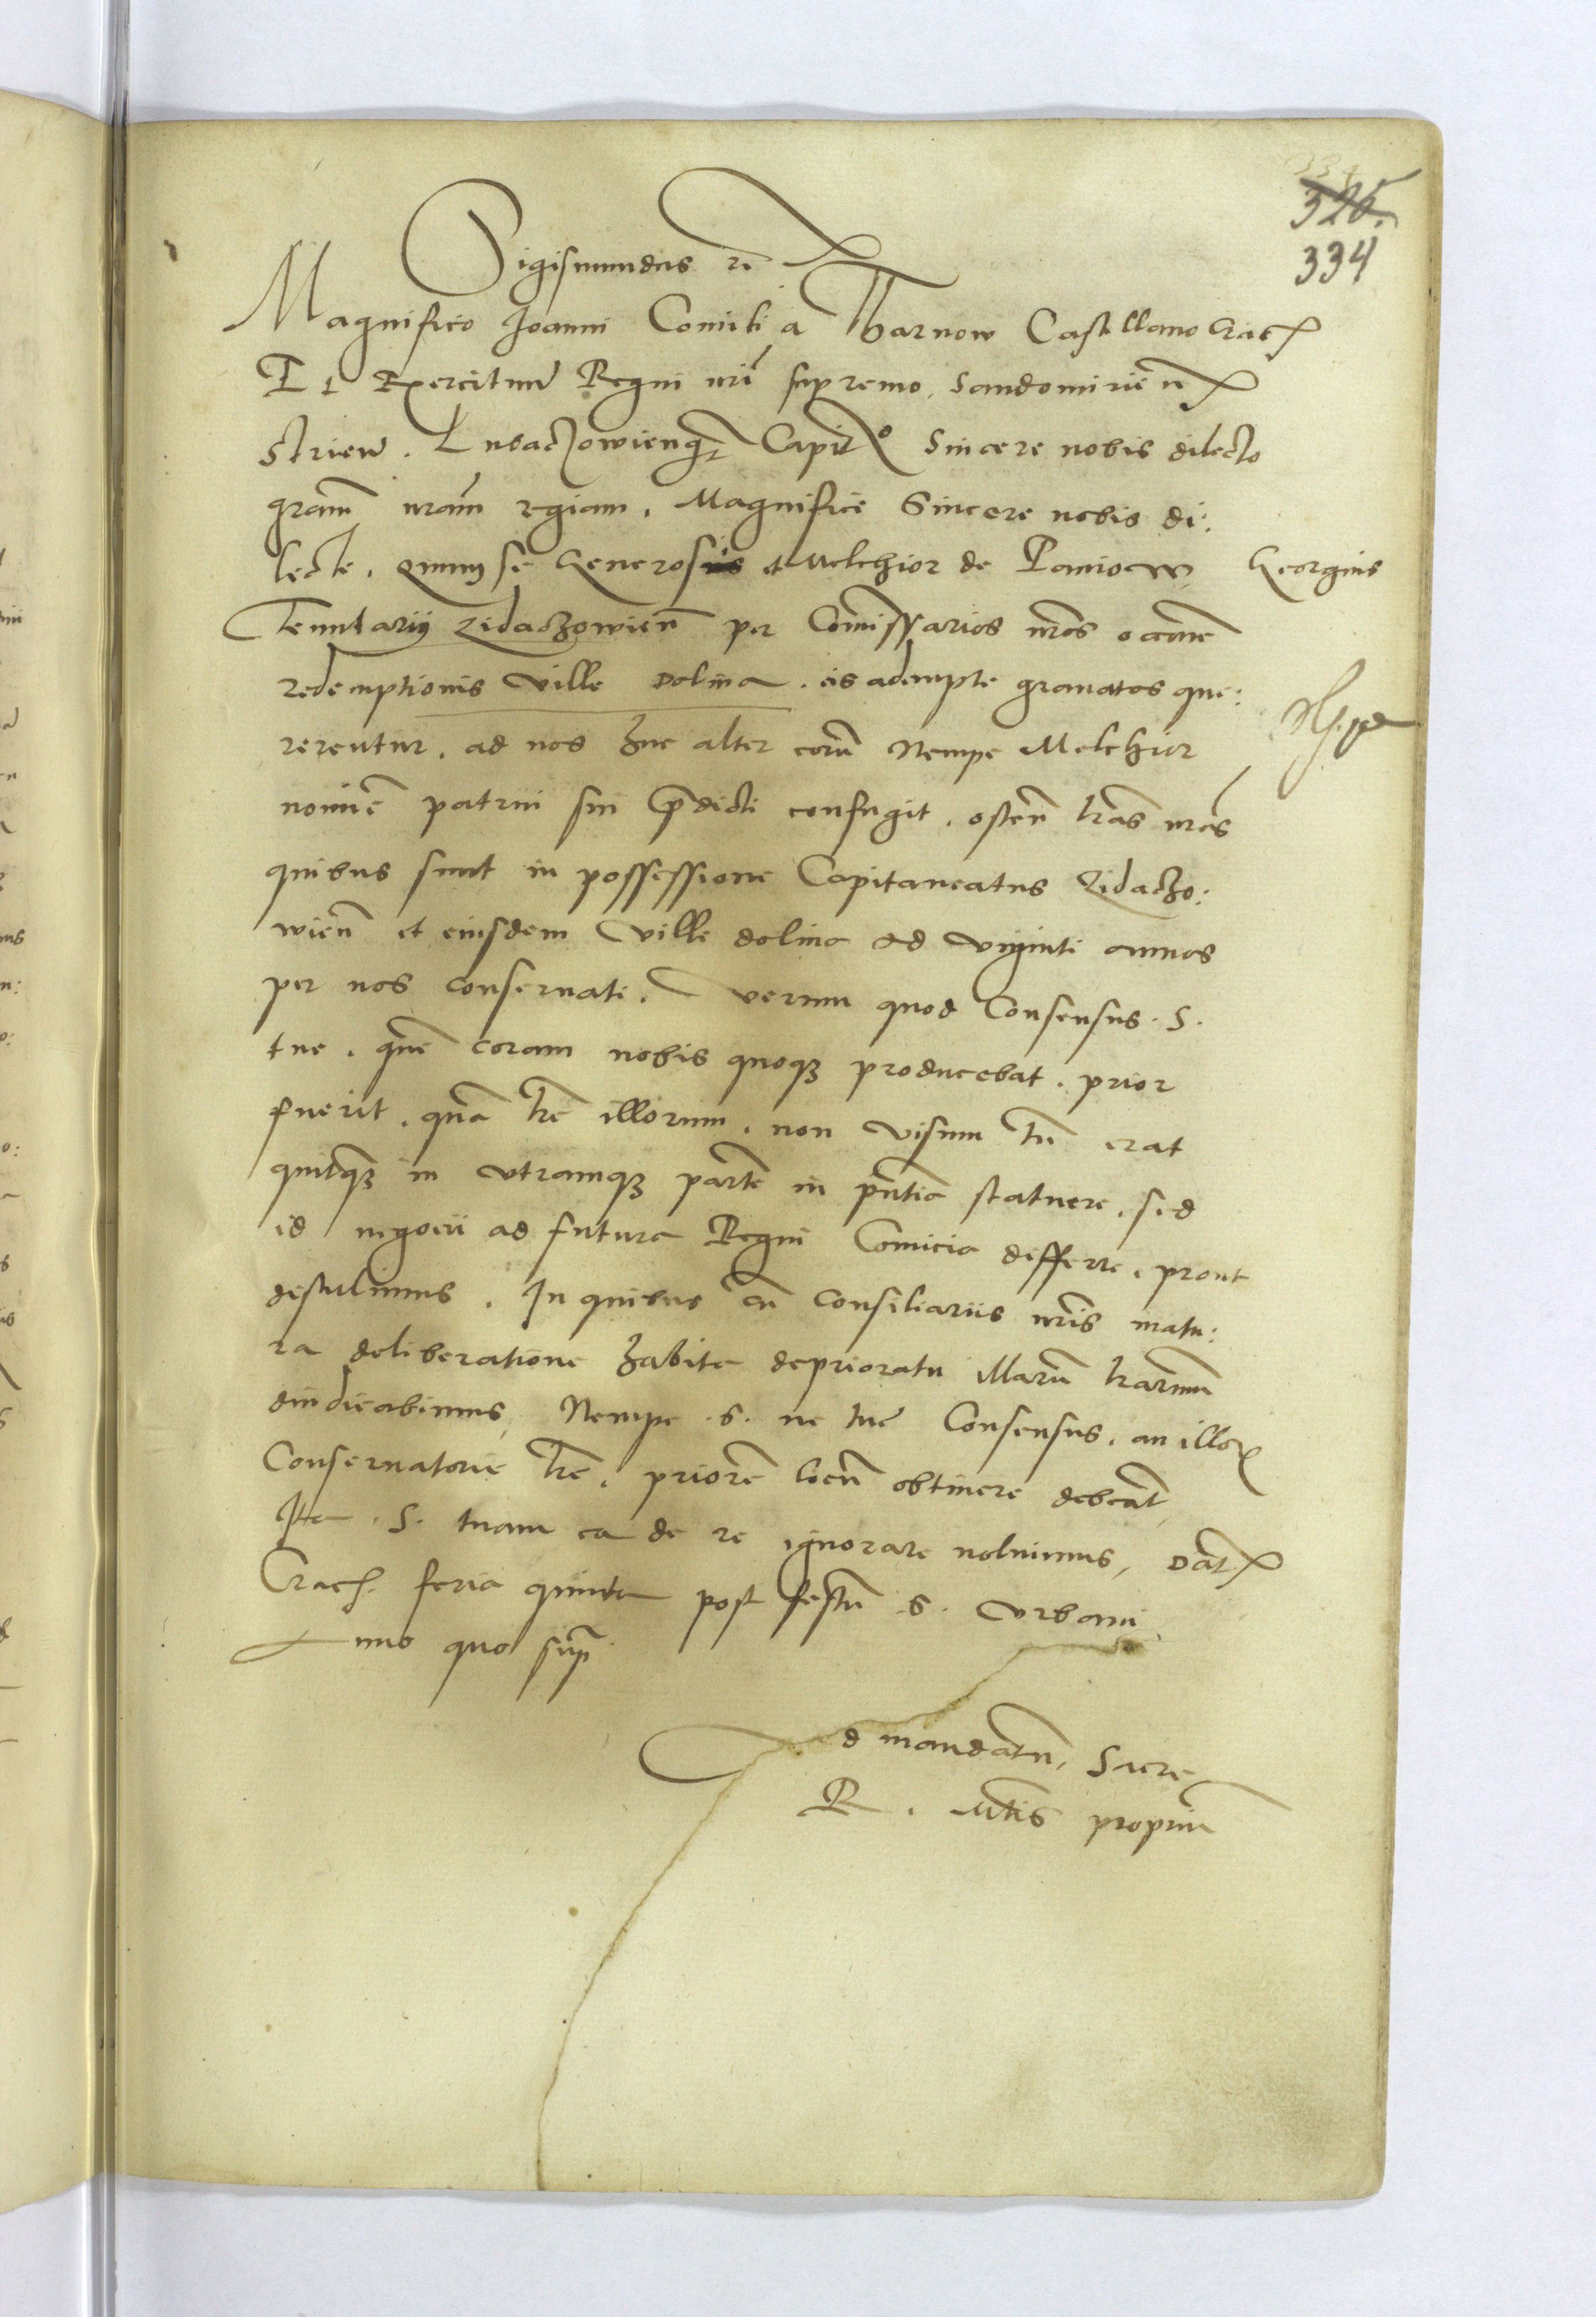 325.
334
Sigismundus rē
Magnifico Joanni Comiti a Tharnow Castellano Crac
Et Exercituū Regni nrī supremo, Sandomirien
Strien. Lubaczowienq Capito Sincere nobis dilecto
gram̄ nram̄ regiam. Magnifice Sincere nobis di:
lecte. Quum se Generosis et Melchior de Paniow, Georgius
Tenutarii Zidaczowien̄ per Com̄issarios nr̄os occ̄one
redemptionis Ville Dolina. eis adempte gravatos que:
rerentur. ad nos huc alter eorū Nempe Melchior
nomīe patrui sui p̄dicti confugit. osten̄ lr̄as nr̄as
quibus sunt in possessione Capitaneatus Zidaczo:
wien̄ et eiusdem Ville dolina ad viginti annos
per nos conservati. Verum quod Consensus. S.
tue. quē coram nobis quoqȝ producebat. prior
fuerit. quā lr̄e illorum. non visum tn̄ erat
quitqȝ in utramqȝ partē in pn̄tia statuere. sed
id negocii ad futura Regni Comicia differre. prout
distulimus. In quibus cū consiliariis nr̄is matu:
ra deliberatione habita deprioratu illarū lr̄arum
diiudicabimus, Nempe. S. ne tue Consensus. an illor
Conservatorie lr̄e. priorē locū obtinere debeāt,
Ita. S. tuam ea de re ignorare noluimus, Dat
Crac. feria quinta post festū S. Urbani
Anno quo sup̄.
Ad mandatū, Sacre
R. Mtis propriū